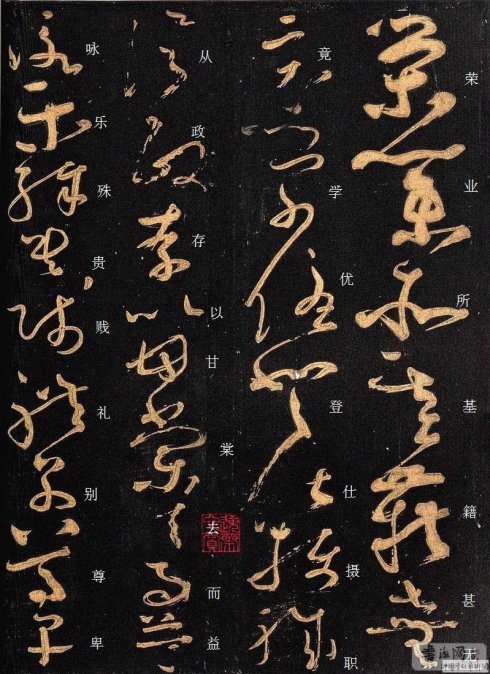 荣业所基籍甚无
竟学优登仕摄职
从政存以甘棠去而益
咏乐殊贵贱礼别尊卑
书法网